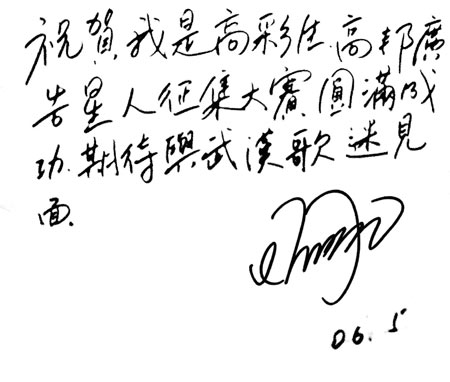 祝賀我是高彩生.高邦廣
告星人征集大賽圓滿成
功.期待與武漢歌迷見
面.
06.5